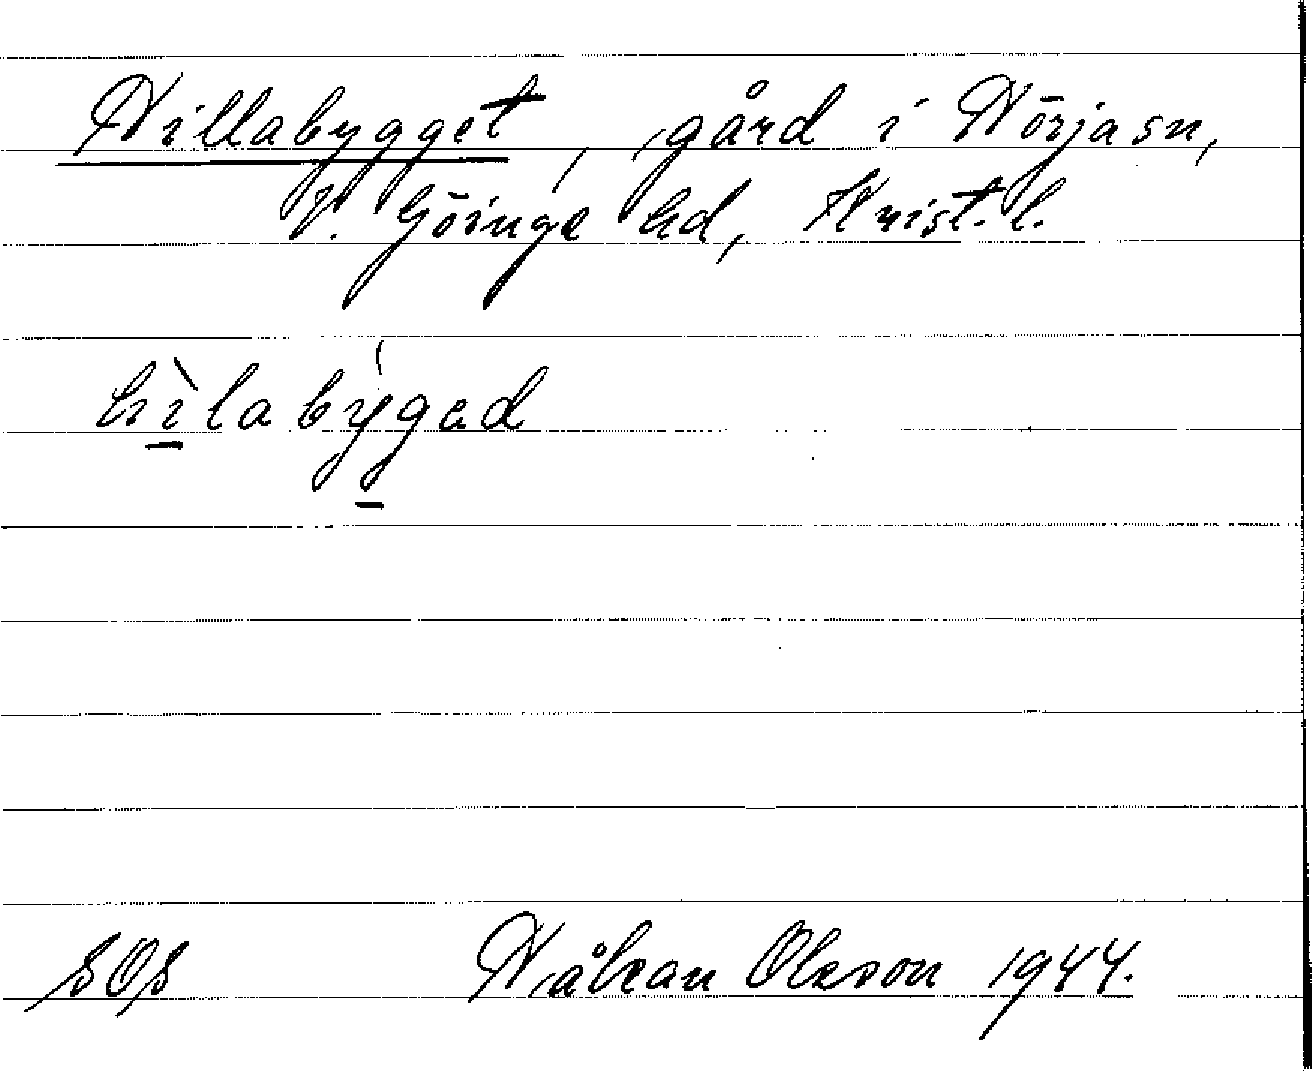 Hillabygget, gård i Hörja sn,
V. Göinge hd, Krist. l.
hìlabýgad
SOS Håkan Olsson 1944.